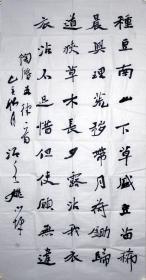 種豆南山下草盛豆苗稀
晨興理荒穢帶月荷鋤歸
道狹草木長夕露沾我衣
衣沾不足惜但使願無違
陶潛五律一首